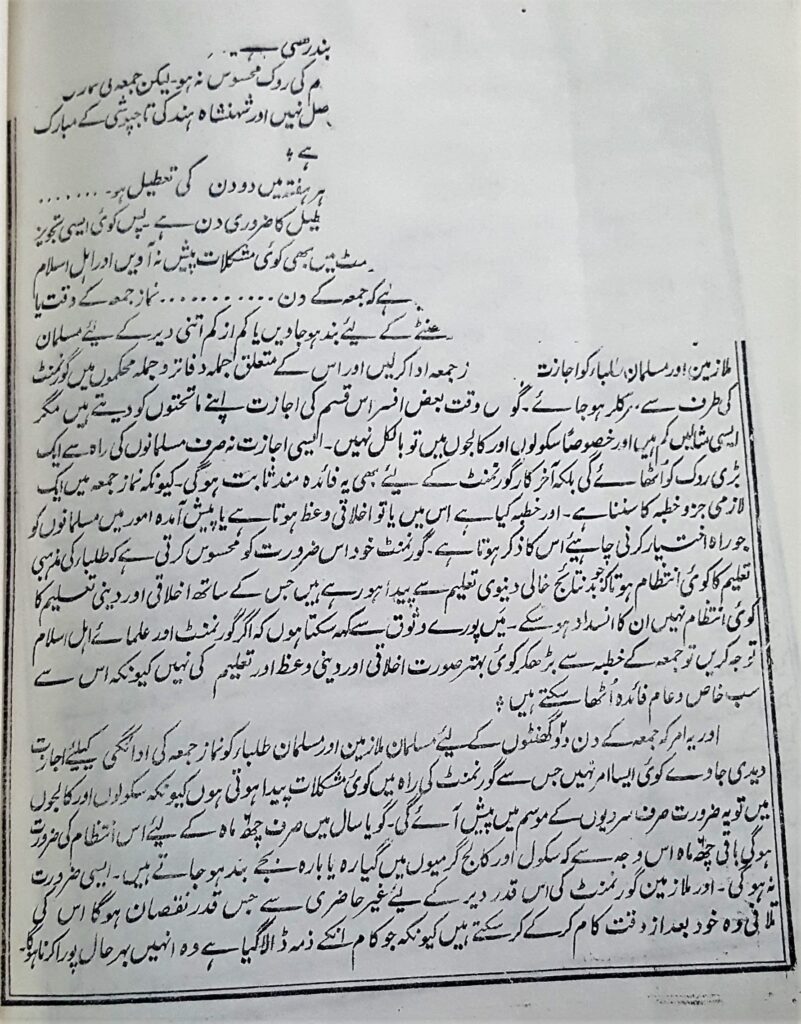 بند رہتی ہے
م کی روک محسوس نہ ہو۔ لیکن جمعہ کی
صل نہیں اور شہنشاہ ہند کی تاجپوشی کے مبارک
ہے ؞
ہر ہفتہ میں دو دن کی تعطیل ہو۔ .......
طیل کا ضروری دن ہے۔ پس کوئی ایسی تجویز
منٹ میں بھی کوئی مشکلات پیش نہ آویں اور اہل اسلام
ہے کہ جمعہ کے دن ............ نماز جمعہ کے وقت یا
گھنٹے کے لیئے بند ہوجاویں یا کم از کم اتنی دیر کے لیئے مسلمان
ملازمین اور مسلمان طلباء کو اجازت ز جمعہ ادا کرلیں اور اس کے متعلق جملہ دفاتر و جملہ محکموں میں گورنمنٹ
کی طرف سے سرکلر ہو جائے۔ گو وقت بعض افسر اس قسم کی اجازت اپنے ماتحتوں کو دیتے ہیں مگر
ایسی مثالیں کم ہیں اور خصوصاً سکولوں اور کالجوں میں تو بالکل نہیں۔ ایسی اجازت نہ صرف مسلمانوں کی راہ سے ایک
بڑی روک کو اُٹھائے گی بلکہ آخر کار گورنمنٹ کے لیئے بھی یہ فائدہ مند ثابت ہوگی۔ کیونکہ نماز جمعہ میں ایک
لازمی جزو خطبہ کا سننا ہے۔ اور خطبہ کیا ہے اس میں یا تو اخلاقی وعظ ہوتا ہے یا پیش آمدہ امور میں مسلمانوں کو
جو راہ اختیار کرنی چاہیئے اس کا ذکر ہوتا ہے۔ گورنمنٹ خود اس ضرورت کو محسوس کرتی ہے کہ طلباء کی مذہبی
تعلیم کا کوئی انتظام ہو تاکہ جو بد نتائج خالی دنیوی تعلیم سے پیدا ہو رہے ہیں جس کے ساتھ اخلاقی اور دینی تعلیم کا
کوئی انتظام نہیں ان کا انسداد ہو سکے۔ میں پورے وثوق سے کہہ سکتا ہوں کہ اگر گورنمنٹ اور علمائے اہل اسلام
توجہ کریں تو جمعہ کے خطبہ سے بڑھکر کوئی بہتر صورت اخلاقی اور دینی وعظ اور تعلیم کی نہیں کیونکہ اس سے
سب خاص و عام فائدہ اُٹھا سکتے ہیں ؞
اور یہ امر کہ جمعہ کے دن دو گھنٹوں کے لیئے مسلمان ملازمین اور مسلمان طلباء کو نماز جمعہ کی ادائگی کیلئے اجازت
دیدی جاوے کوئی ایسا امر نہیں جس سے گورنمنٹ کی راہ میں کوئی مشکلات پیدا ہوتی ہوں کیونکہ سکولوں اور کالجوں
میں تو یہ ضرورت صرف سردیوں کے موسم میں پیش آئے گی۔ گویا سال میں صرف چھ ماہ کے لیئے اس انتظام کی ضرورت
ہوگی باقی چھ ماہ اس وجہ سے کہ سکول اور کالج گرمیوں میں گیارہ یا بارہ بجے بند ہو جاتے ہیں۔ ایسی ضرورت
نہ ہوگی۔ اور ملازمین گورنمنٹ کی اس قدر دیر کے لیئے غیر حاضری سے جس قدر نقصان ہوگا اس کی
تلافی وہ خود بعد از وقت کام کر کے کر سکتے ہیں کیونکہ جو کام انکے ذمہ ڈالا گیا ہے وہ انہیں بہر حال پورا کرنا ہوگا۔